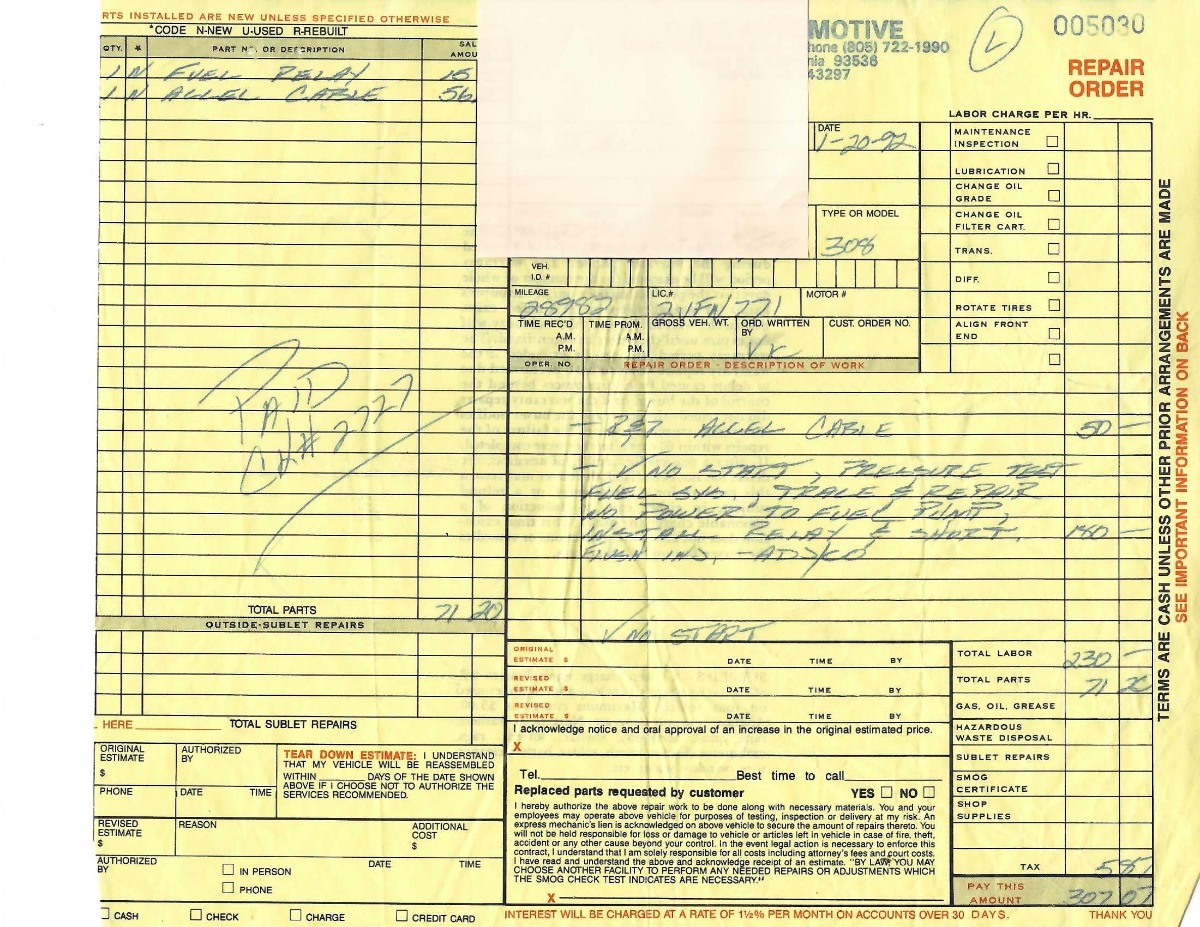 RTS INSTALLED ARE NEW UNLESS SPECIFIED OTHERWISE
*CODE N-NEW U-USED R-REBUILT
QTY. * PART NO. OR DESCRIPTION SAL AMOU
1 N FUEL RELAY 15
1 N ACCEL CABLE 56
PAID
CK# 2727
TOTAL PARTS 71 20
OUTSIDE-SUBLET REPAIRS
HERE TOTAL SUBLET REPAIRS
ORIGINAL ESTIMATE $
AUTHORIZED BY
PHONE DATE TIME
TEAR DOWN ESTIMATE: I UNDERSTAND
THAT MY VEHICLE WILL BE REASSEMBLED
WITHIN ______ DAYS OF THE DATE SHOWN
ABOVE IF I CHOOSE NOT TO AUTHORIZE THE
SERVICES RECOMMENDED.
REVISED ESTIMATE $
REASON
ADDITIONAL COST $
AUTHORIZED BY
IN PERSON
PHONE
DATE TIME
CASH CHECK CHARGE CREDIT CARD
MOTIVE
hone (805) 722-1990
nia 93536
43297
L
005030
REPAIR
ORDER
LABOR CHARGE PER HR.
DATE
1-20-92
TYPE OR MODEL
308
VEH. I.D. #
MILEAGE 28982
LIC.# 2VFN771
MOTOR #
TIME REC'D A.M. P.M.
TIME PROM. A.M. P.M.
GROSS VEH. WT.
ORD. WRITTEN BY VK
CUST. ORDER NO.
OPER. NO. REPAIR ORDER - DESCRIPTION OF WORK
MAINTENANCE INSPECTION
LUBRICATION
CHANGE OIL GRADE
CHANGE OIL FILTER CART.
TRANS.
DIFF.
ROTATE TIRES
ALIGN FRONT END
ACCEL CABLE 50 —
- √ NO START, PRESSURE TEST
FUEL SYS., TRACE & REPAIR
NO POWER TO FUEL PUMP,
INSTALL RELAY & SHORT. 180 —
FLUSH INJ.
√ NO START
ORIGINAL ESTIMATE $ DATE TIME BY
REVISED ESTIMATE $ DATE TIME BY
REVISED ESTIMATE $ DATE TIME BY
I acknowledge notice and oral approval of an increase in the original estimated price.
X
Tel. Best time to call
Replaced parts requested by customer YES NO
I hereby authorize the above repair work to be done along with necessary materials. You and your
employees may operate above vehicle for purposes of testing, inspection or delivery at my risk. An
express mechanic's lien is acknowledged on above vehicle to secure the amount of repairs thereto. You
will not be held responsible for loss or damage to vehicle or articles left in vehicle in case of fire, theft,
accident or any other cause beyond your control. In the event legal action is necessary to enforce this
contract, I understand that I am solely responsible for all costs including attorney's fees and court costs.
I have read and understand the above and acknowledge receipt of an estimate. "BY LAW YOU MAY
CHOOSE ANOTHER FACILITY TO PERFORM ANY NEEDED REPAIRS OR ADJUSTMENTS WHICH
THE SMOG CHECK TEST INDICATES ARE NECESSARY."
X
TOTAL LABOR 230 —
TOTAL PARTS 71 20
GAS, OIL, GREASE
HAZARDOUS WASTE DISPOSAL
SUBLET REPAIRS
SMOG CERTIFICATE
SHOP SUPPLIES
TAX 5 87
PAY THIS AMOUNT 307 07
INTEREST WILL BE CHARGED AT A RATE OF 1½% PER MONTH ON ACCOUNTS OVER 30 DAYS.
THANK YOU
TERMS ARE CASH UNLESS OTHER PRIOR ARRANGEMENTS ARE MADE
SEE IMPORTANT INFORMATION ON BACK